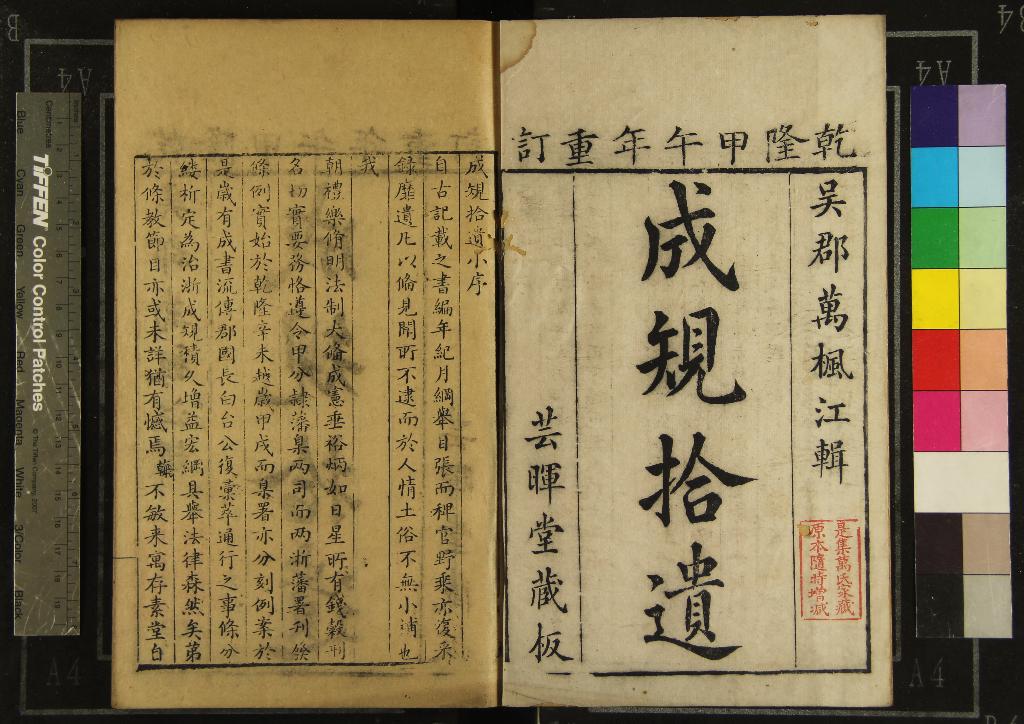 乾隆甲午年重訂
吳郡萬楓江輯
是集萬氏家藏
原本隨時增減
成規拾遺
芸暉堂藏板
成規拾遺小序
自古記載之書編年紀月綱舉目張而稗官野乘亦復采
錄靡遺凡以備見聞所不逮而於人情土俗不無小補也
我
朝禮樂脩明法制大備成憲垂裕炳如日星所有錢穀刑
名切實要務恪遵令甲分隸藩臬兩司而兩浙藩署刊發
條例實始於乾隆辛未越歲甲戌而臬署亦分刻例案於
是歲有成書流傳郡國長白台公復彙萃通行之事條分
縷析定為治浙成規積久增益宏綱具舉法律森然矣第
於條教節目亦或未詳猶有憾焉 不敏来寓存素堂白
TIFFEN Color Control Patches
© The Tiffen Company, 2007
Centimetres
Inches
Blue
Cyan
Green
Yellow
Red
Magenta
White
3/Color
Black
A4
A4
A4
A4
B
B4